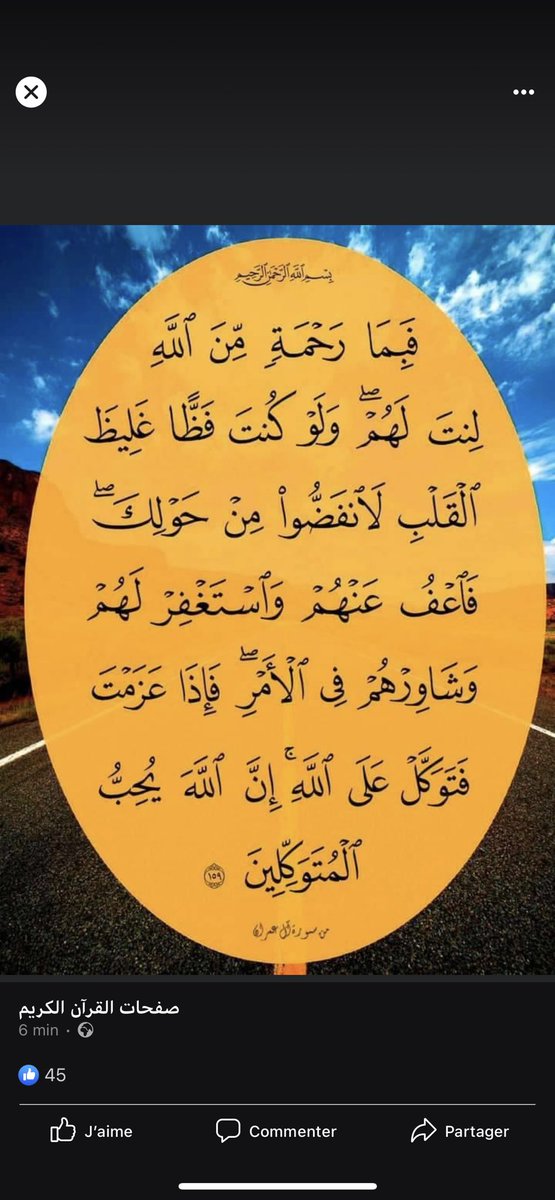 بِسْمِ ٱللَّهِ ٱلرَّحْمَٰنِ ٱلرَّحِيمِ
فَبِمَا رَحْمَةٍ مِّنَ ٱللَّهِ
لِنتَ لَهُمْ ۖ وَلَوْ كُنتَ فَظًّا غَلِيظَ
ٱلْقَلْبِ لَٱنفَضُّوا۟ مِنْ حَوْلِكَ ۖ
فَٱعْفُ عَنْهُمْ وَٱسْتَغْفِرْ لَهُمْ
وَشَاوِرْهُمْ فِى ٱلْأَمْرِ ۖ فَإِذَا عَزَمْتَ
فَتَوَكَّلْ عَلَى ٱللَّهِ ۚ إِنَّ ٱللَّهَ يُحِبُّ
ٱلْمُتَوَكِّلِينَ ١٥٩
من سورة آل عمران
صفحات القرآن الكريم
6 min ·
45
J’aime Commenter Partager